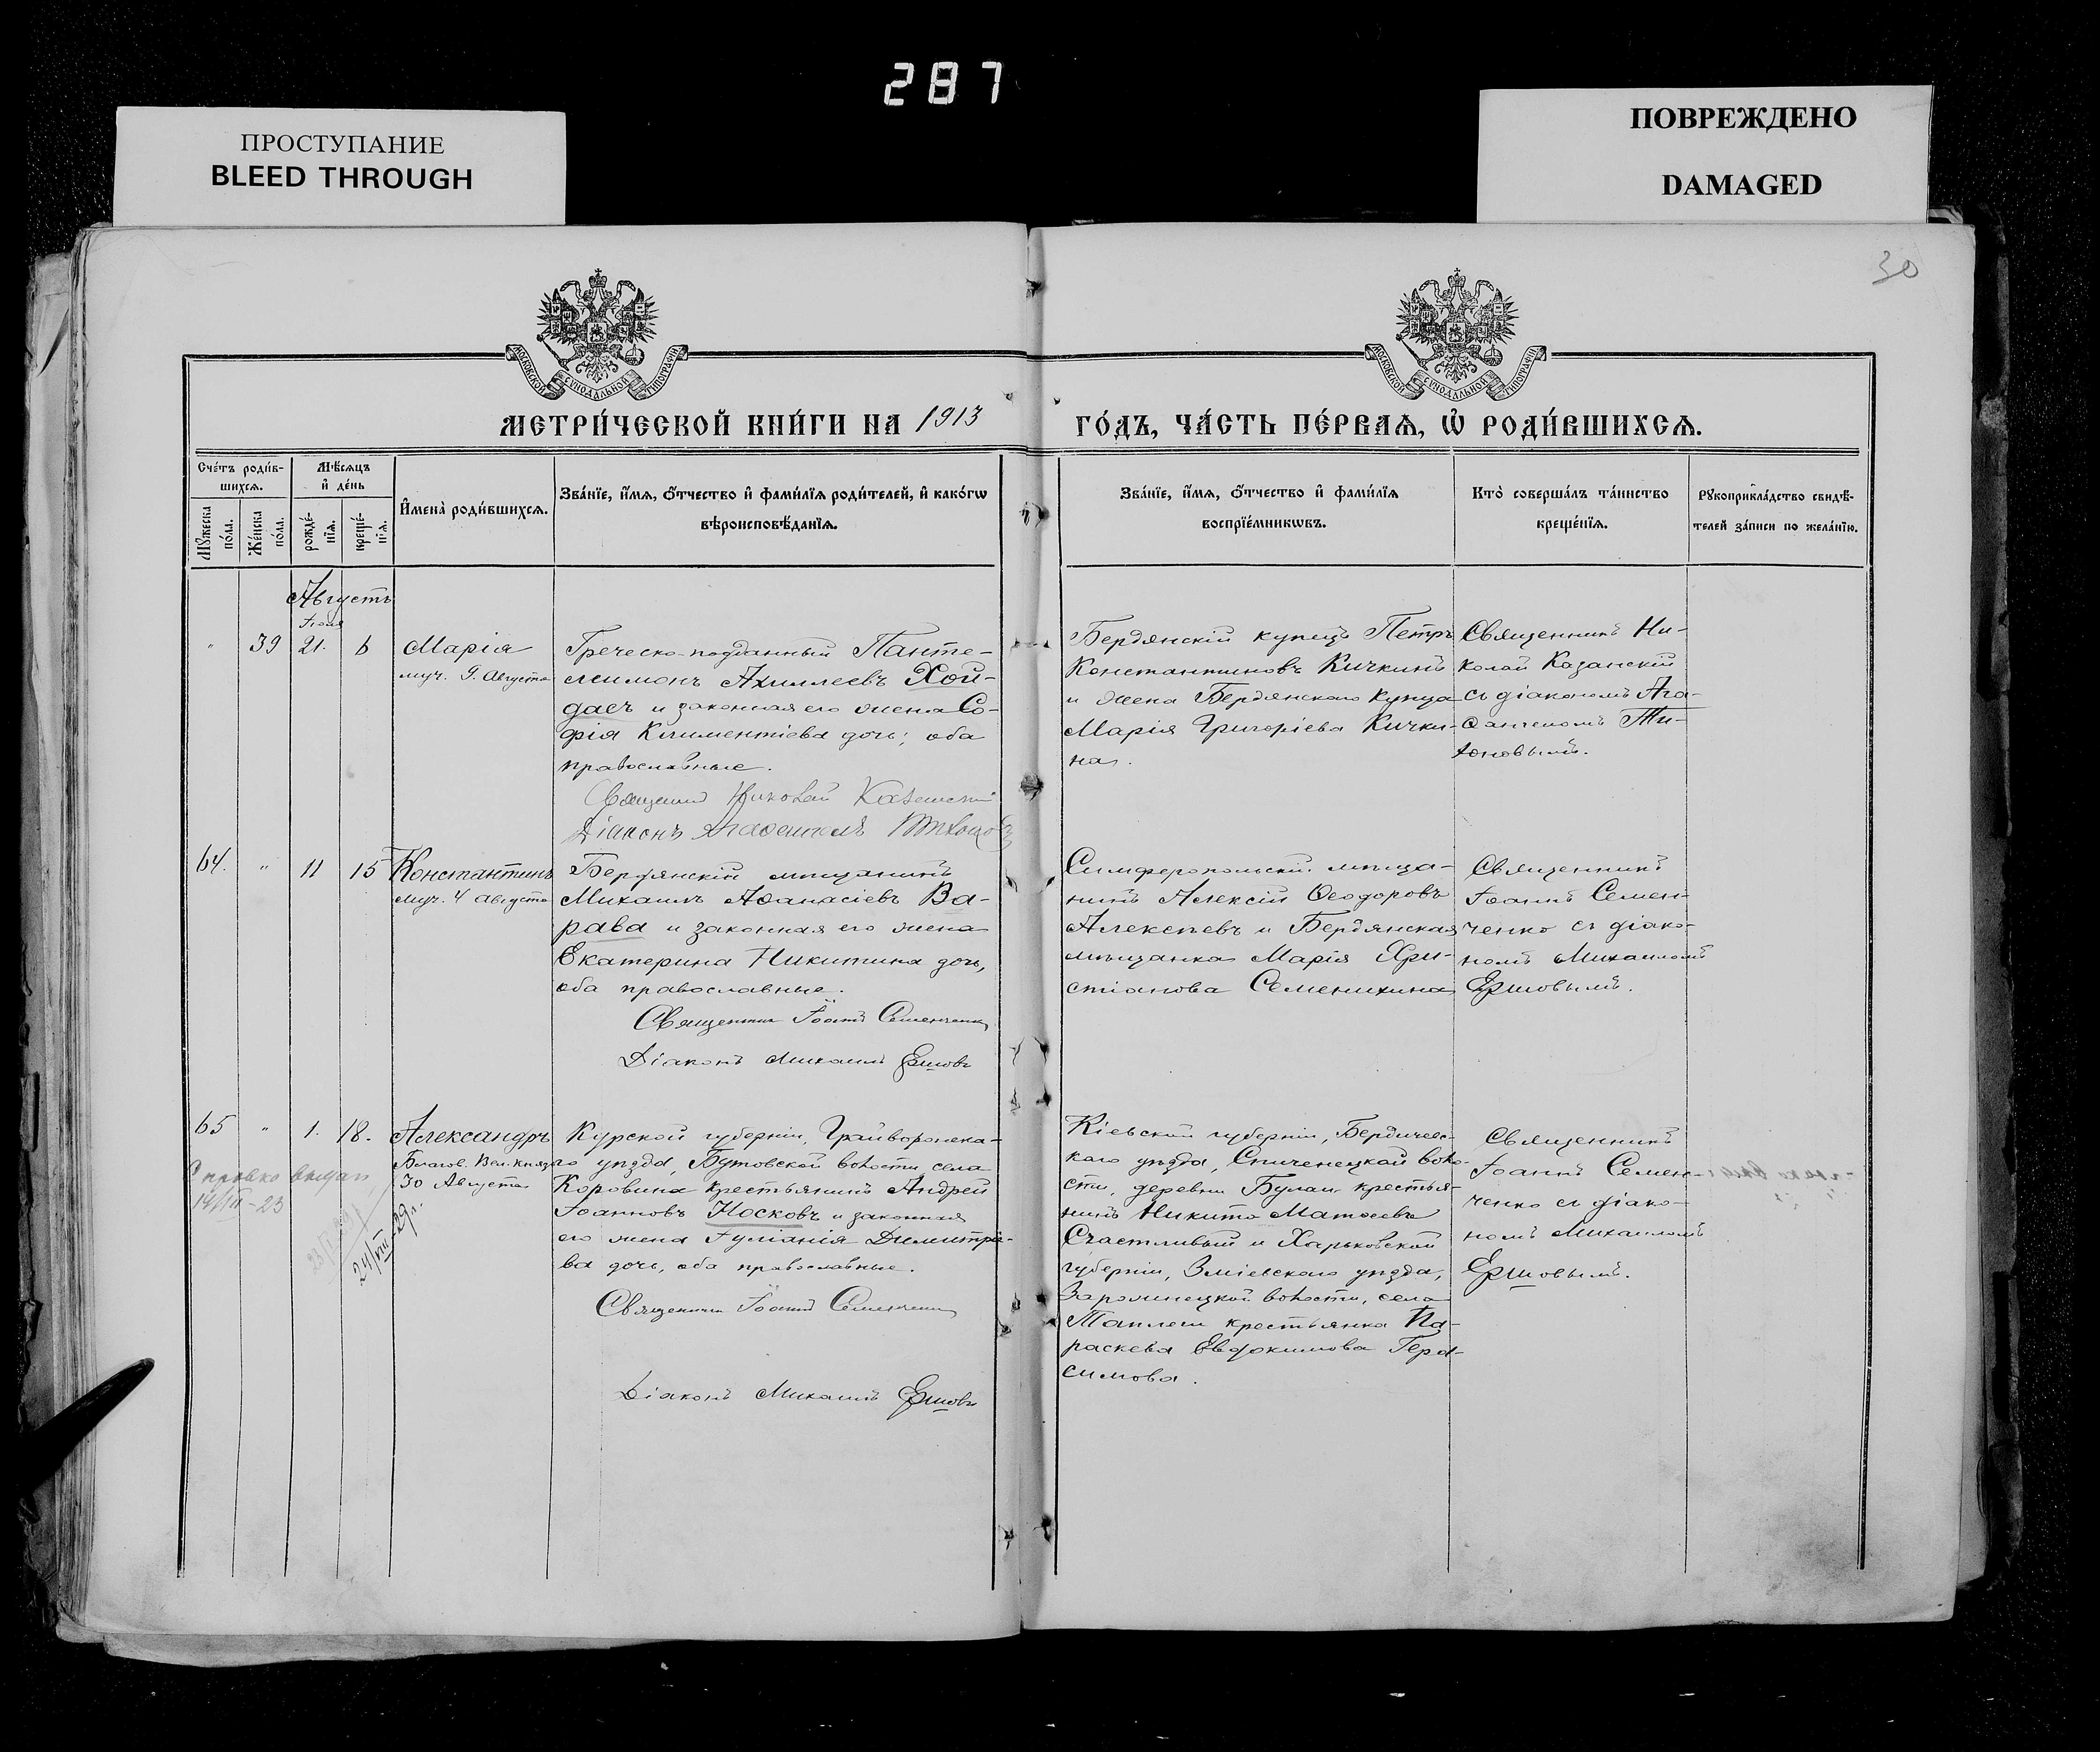 287
ПРОСТУПАНИЕ
BLEED THROUGH
ПОВРЕЖДЕНО
DAMAGED
30
МОСКОВСКОЙ СѴНОДАЛЬНОЙ ТИПОГРАФІИ
МОСКОВСКОЙ СѴНОДАЛЬНОЙ ТИПОГРАФІИ
МЕТРИ́ЧЕСКОЙ КНИ́ГИ НА 1913
ГО́ДЪ, ЧА́СТЬ ПЕ́РВАѦ, Ѡ҆ РОДИ́ВШИХСѦ.
Сче́тъ роди́в-
шихсѧ.
Мꙋ́жеска по́ла.
Же́нска по́ла.
Мѣ́сѧцъ
и҆ де́нь
рожде́-
нїѧ.
креще́-
нїѧ.
И҆мена̀ роди́вшихсѧ.
Зва́нїе, и҆́мѧ, ѻ҆́тчество и҆ фами́лїѧ роди́телей, и҆ како́гѡ
вѣроисповѣ́данїѧ.
Зва́нїе, и҆́мѧ, ѻ҆́тчество и҆ фами́лїѧ
воспрїе́мникѡвъ.
Кто̀ соверша́лъ та́инство
креще́нїѧ.
Рꙋкоприкла́дство свидѣ́-
телей за́писи по жела́нїю.
Августъ
Іюля
" 39 21. 6
Марія
муч. 9. Августа
Греческо-подданный Панте-
леимонъ Ахиллеевъ Хой-
дасъ и законная его жена Со-
фія Климентіева дочь; оба
православные.
Священникъ Николай Казанскій
Діаконъ Агаѳангелъ Тихоновъ
Бердянскій купецъ Петръ
Константиновъ Кичкинъ
и жена Бердянскаго купца
Марія Григоріева Кички-
на.
Священникъ Ни-
колай Казанскій
съ діакономъ Ага-
ѳангеломъ Ти-
хоновымъ.
64. " 11 15
Константинъ
муч. 4 августа
Бердянскій мѣщанинъ
Михаилъ Аѳанасіевъ Ва-
рава и законная его жена
Екатерина Никитина дочь,
оба православные.
Священникъ Іоаннъ Семенченко
Діаконъ Михаилъ Ершовъ
Симферопольскій мѣща-
нинъ Алексій Ѳеодоровъ
Алексѣевъ и Бердянская
мѣщанка Марія Хри-
стіанова Семенихина
Священникъ
Іоаннъ Семен-
ченко съ діако-
номъ Михаиломъ
Ершовымъ.
65 " 1. 18.
Александръ
Благов. Вел. Князя
30 Августа
24/VIII-29 г.
Курской губерніи, Грайворонска-
го уѣзда, Бутовской волости, села
Коровина крестьянинъ Андрей
Іоанновъ Носковъ и законная
его жена Іуліанія Димитріе-
ва дочь, оба православные.
Священникъ Іоаннъ Семенченко
Діаконъ Михаилъ Ершовъ
Кіевской губерніи, Бердичевс-
каго уѣзда, Спиченецкой воло-
сти, деревни Булаи крестья-
нинъ Никита Матѳеевъ
Счастливый и Харьковской
губерніи, Зміевскаго уѣзда,
волости, села
крестьянка Па-
раскева Евдокимова Гера-
симова.
Священникъ
Іоаннъ Семен-
ченко съ діако-
номъ Михаиломъ
Ершовымъ.